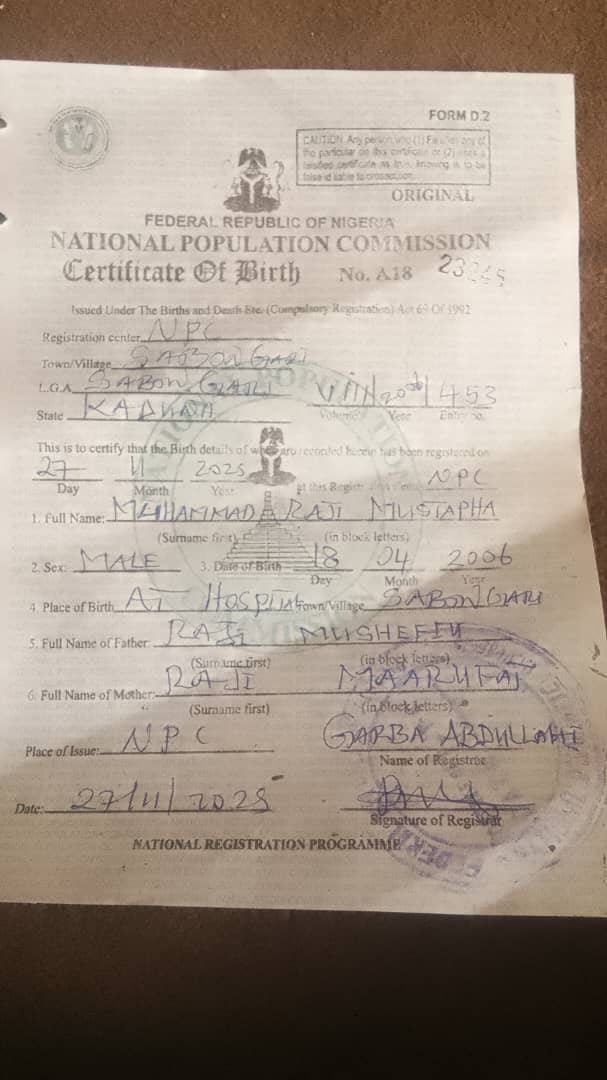 FORM D.2
CAUTION: Any person who (1) Falsifies any of
the particular on this certificate or (2) uses a
falsified certificate as true, knowing it to be
false is liable to prosecution.
ORIGINAL
FEDERAL REPUBLIC OF NIGERIA
NATIONAL POPULATION COMMISSION
Certificate Of Birth No. A18
Issued Under The Births and Death Etc. (Compulsory Registration) Act 69 Of 1992
Registration center NPC
Town/Village SABON GARI
L.G.A SABON GARI VIII 2006 453
State KADUNA Volume Year Entry no.
This is to certify that the Birth details of whom are recorded herein has been registered on
27 11 2025 at this Registration NPC
Day Month Year
1. Full Name: MUHAMMAD RAJI MUSTAPHA
(Surname first) (in block letters)
2. Sex: MALE 3. Date of Birth 18 04 2006
Day Month Year
4. Place of Birth AT HOSPITAL Town/Village SABON GARI
5. Full Name of Father: RAJI MUSHEFIU
(Surname first) (in block letters)
6. Full Name of Mother: RAJI MAARUFAT
(Surname first) (in block letters)
Place of Issue: NPC GARBA ABDULLAHI
Name of Registrar
Date: 27/11/2025
Signature of Registrar
NATIONAL REGISTRATION PROGRAMME